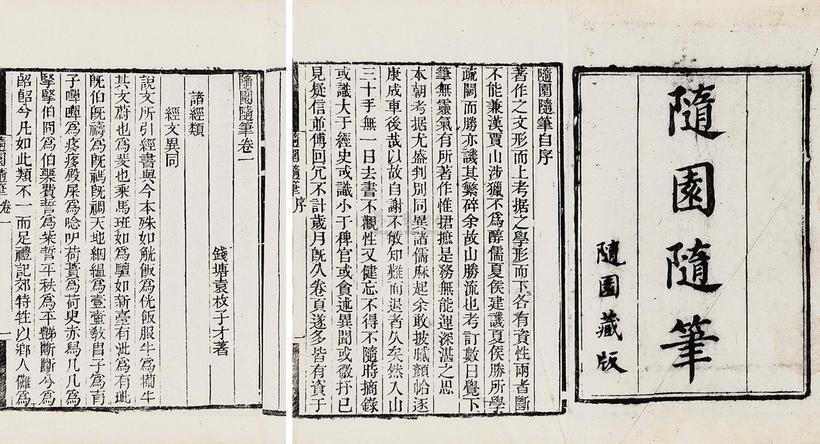 隨園隨筆
隨園藏版
隨園隨筆自序
著作之文形而上考据之學形而下各有資性兩者斷
不能兼漢賈山涉獵不爲醇儒夏侯建譏夏侯勝所學
疏闊而勝亦譏其繁碎余故山勝流也考訂數日覺下
筆無靈氣有所著作惟捃摭是務無能運深湛之思
本朝考据尤盛判別同異諸儒麻起余敢披膩顏帢逐
康成車後哉以故自謝不敏知難而退者久矣然入山
三十年無一日去書不觀性又健忘不得不隨時摘錄
或識大于經史或識小于稗官或貪述異聞或微抒己
見疑信並傳回冗不計歲月旣久卷頁遂多皆有資于
隨園隨筆 序
隨園隨筆卷一
錢塘袁枚子才著
諸經類
經文異同
說文所引經書與今本殊如觥飯爲侊飯服牛爲犕牛
其文蔚也爲斐也乘馬班如爲驙如新臺有泚爲有玼
旣伯旣禱爲旣禡旣禂天地絪縕爲壹壺敎胄子爲育
子嘽嘽爲痑痑殿屎爲唸吚荷蕢爲荷臾赤舄几几爲
掔掔伯冏爲伯臩費誓爲粊誓平秩爲平豑斷斷今爲
今凡如此類不一而足禮記郊特牲以鄕人儺爲
隨園隨筆 卷一